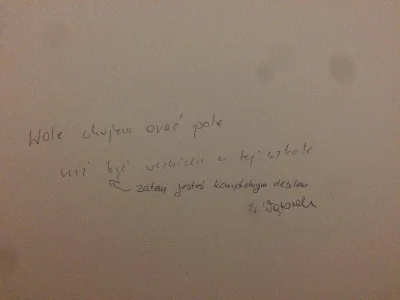 Wole chujem orać pole
niż być uczniem w tej szkole
zatem jesteś kompletnym debilem